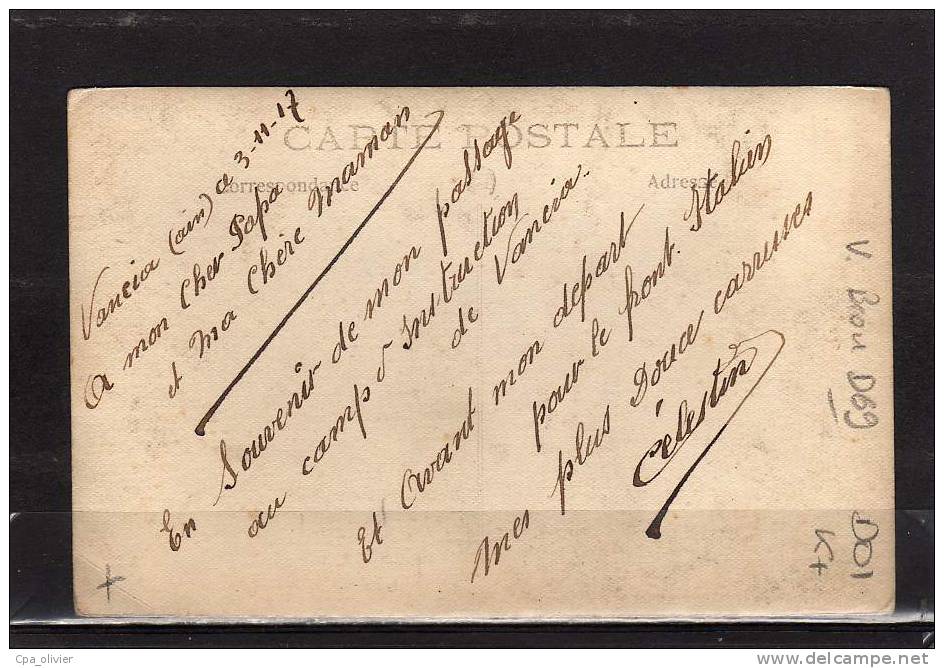 CARTE POSTALE
Correspondance
Adresse
Vancia (ain) a 3-11-17
A mon Cher Papa
et Ma Chère Maman
En Souvenir de mon passage
au camp d Instruction
de Vancia.
Et Avant mon depart
pour le front Italien
Mes plus Douce carrises
Célestin
V. Bron D69
D01
K+
+
Cpa_olivier
delcampe.net